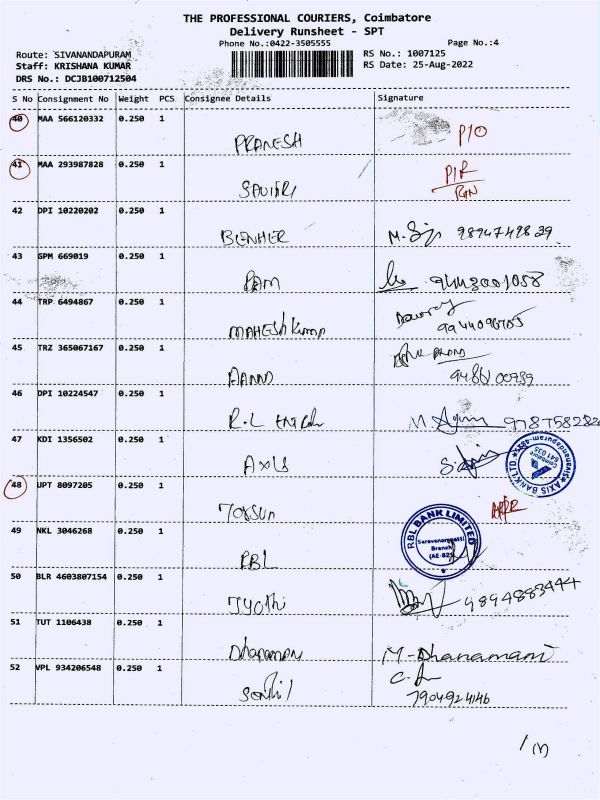 THE PROFESSIONAL COURIERS, Coimbatore
Delivery Runsheet - SPT
Phone No.:0422-3505555 Page No.:4
Route: SIVANANDAPURAM RS No.: 1007125
Staff: KRISHANA KUMAR RS Date: 25-Aug-2022
DRS No.: DCJB100712504
S No Consignment No Weight PCS Consignee Details Signature
40 MAA 566120332 0.250 1
PRANESH P/O
41 MAA 293987828 0.250 1
SAVITRI
42 DPI 10220202 0.250 1
BENHER 9894749839
43 GPM 669019 0.250 1
RAM 9443001058
44 TRP 6494867 0.250 1
MAHESH Kumar
45 TRZ 365067167 0.250 1
AANAND
46 DPI 10224547 0.250 1
R.L
47 KDI 1356502 0.250 1
AXIS
AXIS BANK LTD
Sivanandapuram
Coimbatore
641 035
48 UPT 8097205 0.250 1
49 NKL 3046268 0.250 1
RBL
RBL BANK LIMITED
Saravanampatti
Branch
50 BLR 4603807154 0.250 1
Jyothi 9894883444
51 TUT 1106438 0.250 1
Dhanaman M-Dhanamani
52 VPL 934206548 0.250 1
Senthil 7904924146